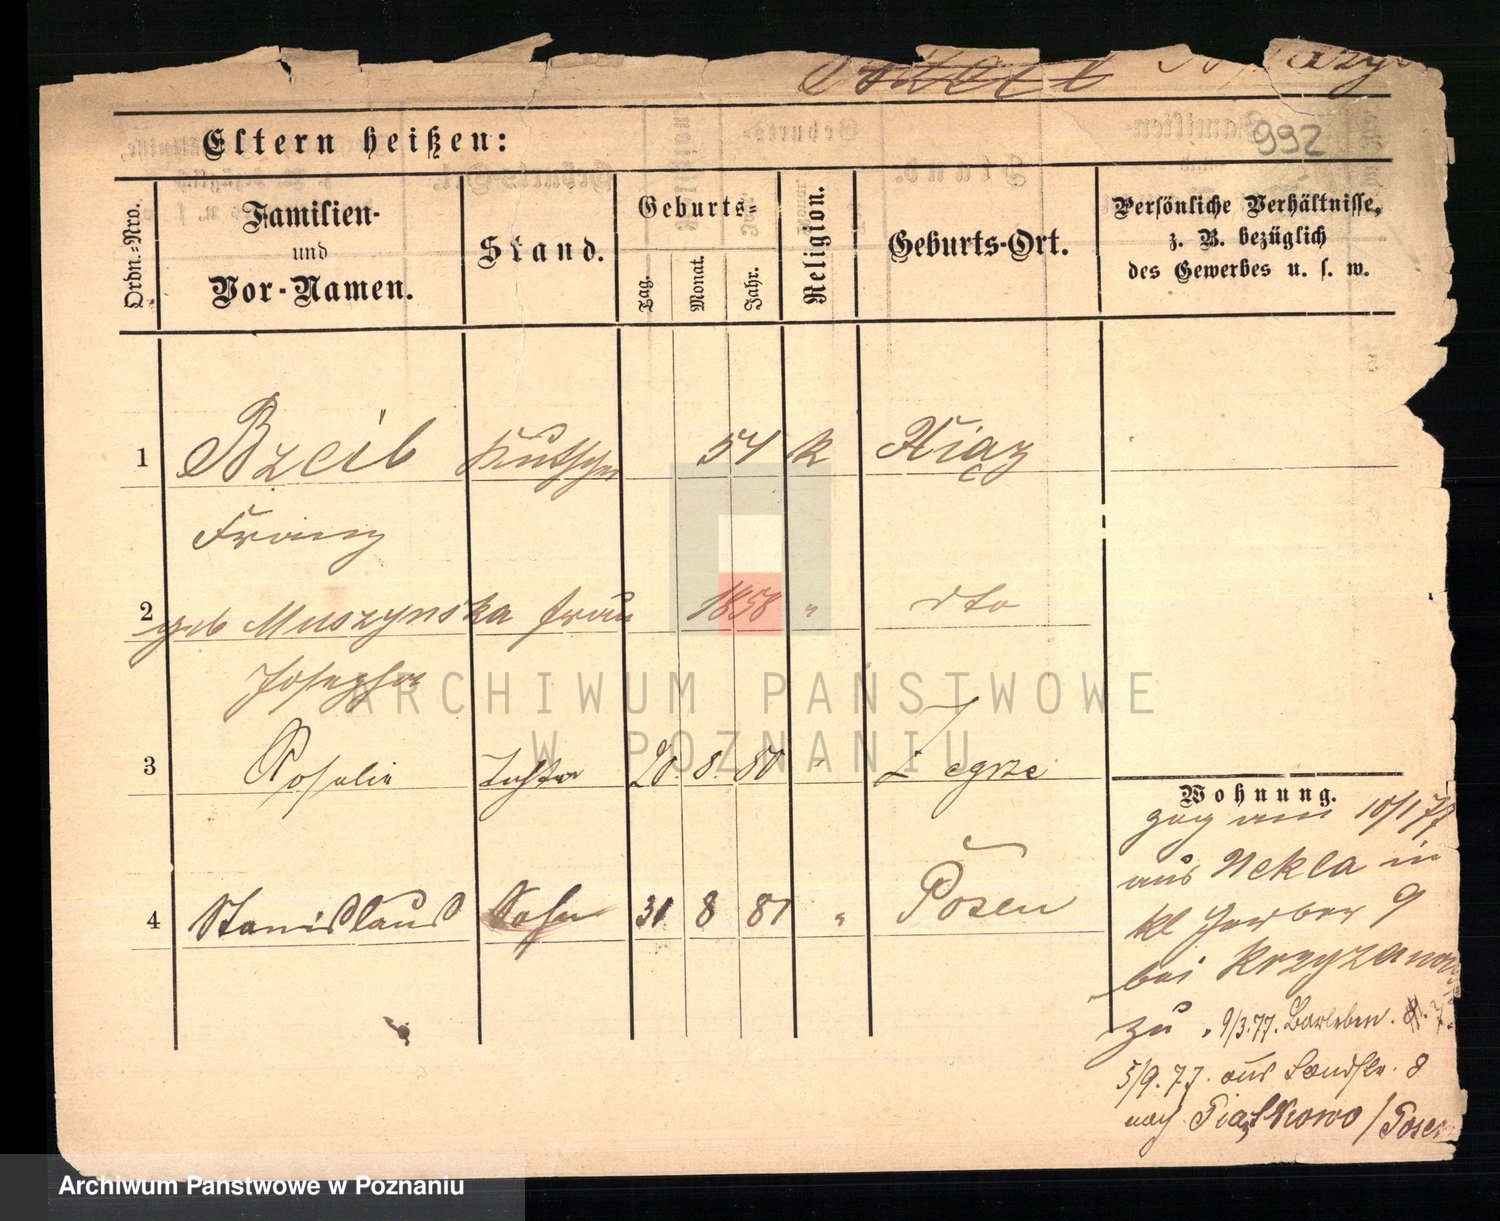 992
Eltern heißen:
Ordn.-Nro.
Familien-
und
Vor-Namen.
Stand.
Geburts-
Tag.
Monat.
Jahr.
Religion.
Geburts-Ort.
Persönliche Verhältnisse,
z. B. bezüglich
des Gewerbes u. s. w.
1 Bzeib Kutscher 54 k Xiąz
Franz
2 geb Muszynska Frau 1858 " dto
Josepha
3 Rosalie Tochter 20 8 80 " Zegrze
4 Stanislaus Sohn 31 8 81 " Posen
Wohnung.
zog am 10/1 77
aus Nekla in
kl Gerber 9
bei Krzyzanow
zu . 9/3.77. Barleben.
5/9.77. aus Landstr. 8
nach Piątkowo / Posen
ARCHIWUM PAŃSTWOWE
W POZNANIU
Archiwum Państwowe w Poznaniu